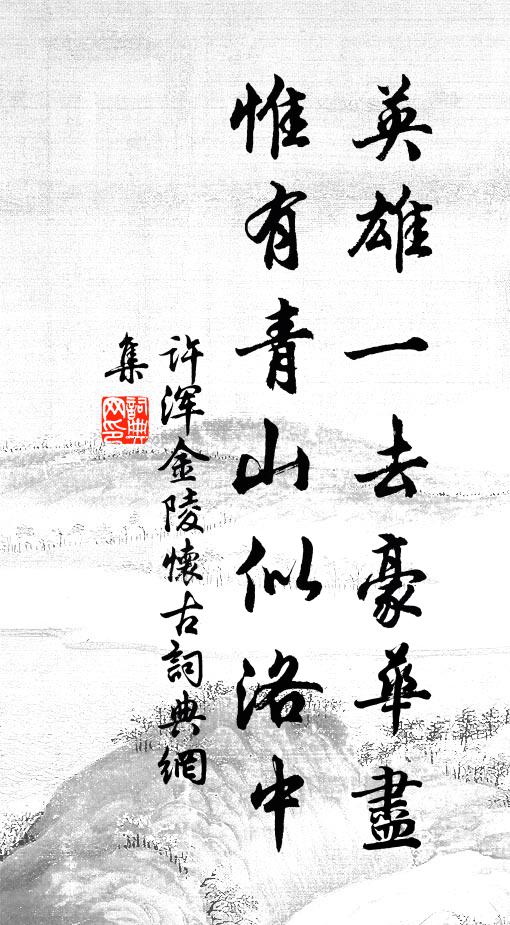 英雄一去豪華盡
惟有青山似洛中
許渾金陵懷古詞典網
集
詞典網印